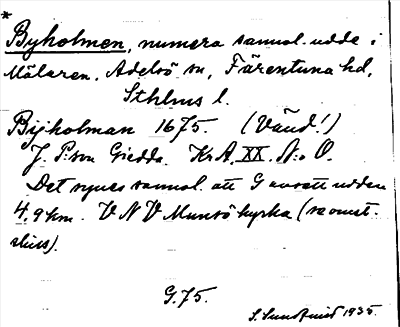 *
Byholmen, numera sannol. udde i
Mälaren, Adelsö sn, Färentuna hd,
Sthlms l.
Bijholman 1675. (Vänd!)
J. P:son Giedda. KrA XX. N:o O.
Det synes sannol. att G avsett udden
4,9 km. V N V Munsö kyrka
G.75.
S. Sundqvist 1935.